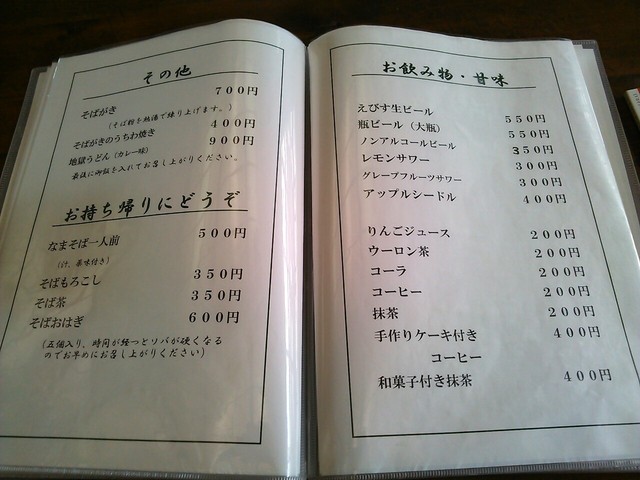 その他
そばがき 700円
(そば粉を熱湯で練り上げます。)
そばがきのうちわ焼き 400円
地獄うどん (カレー味) 900円
最後に御飯を入れてお召し上がりください。
お持ち帰りにどうぞ
なまそば一人前 500円
(汁、薬味付き)
そばもろこし 350円
そば茶 350円
そばおはぎ 600円
(五個入り、時間が経つとソバが硬くなる
のでお早めにお召し上がりください)
お飲み物・甘味
えびす生ビール 550円
瓶ビール (大瓶) 550円
ノンアルコールビール 350円
レモンサワー 300円
グレープフルーツサワー 300円
アップルシードル 400円
りんごジュース 200円
ウーロン茶 200円
コーラ 200円
コーヒー 200円
抹茶 200円
手作りケーキ付き 400円
コーヒー
和菓子付き抹茶 400円